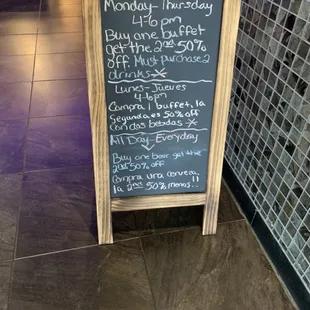 Monday-Thursday
4-6pm
Buy one buffet
get the 2nd 50%
off. Must purchase 2
drinks
Lunes-Jueves
4-6pm
Compra 1 buffet, la
Segunda es 50% off
Con dos bebidas
All Day-Everyday
Buy one beer get the
2nd 50% off
Compra una cerveza
la 2nd 50% menos..!!